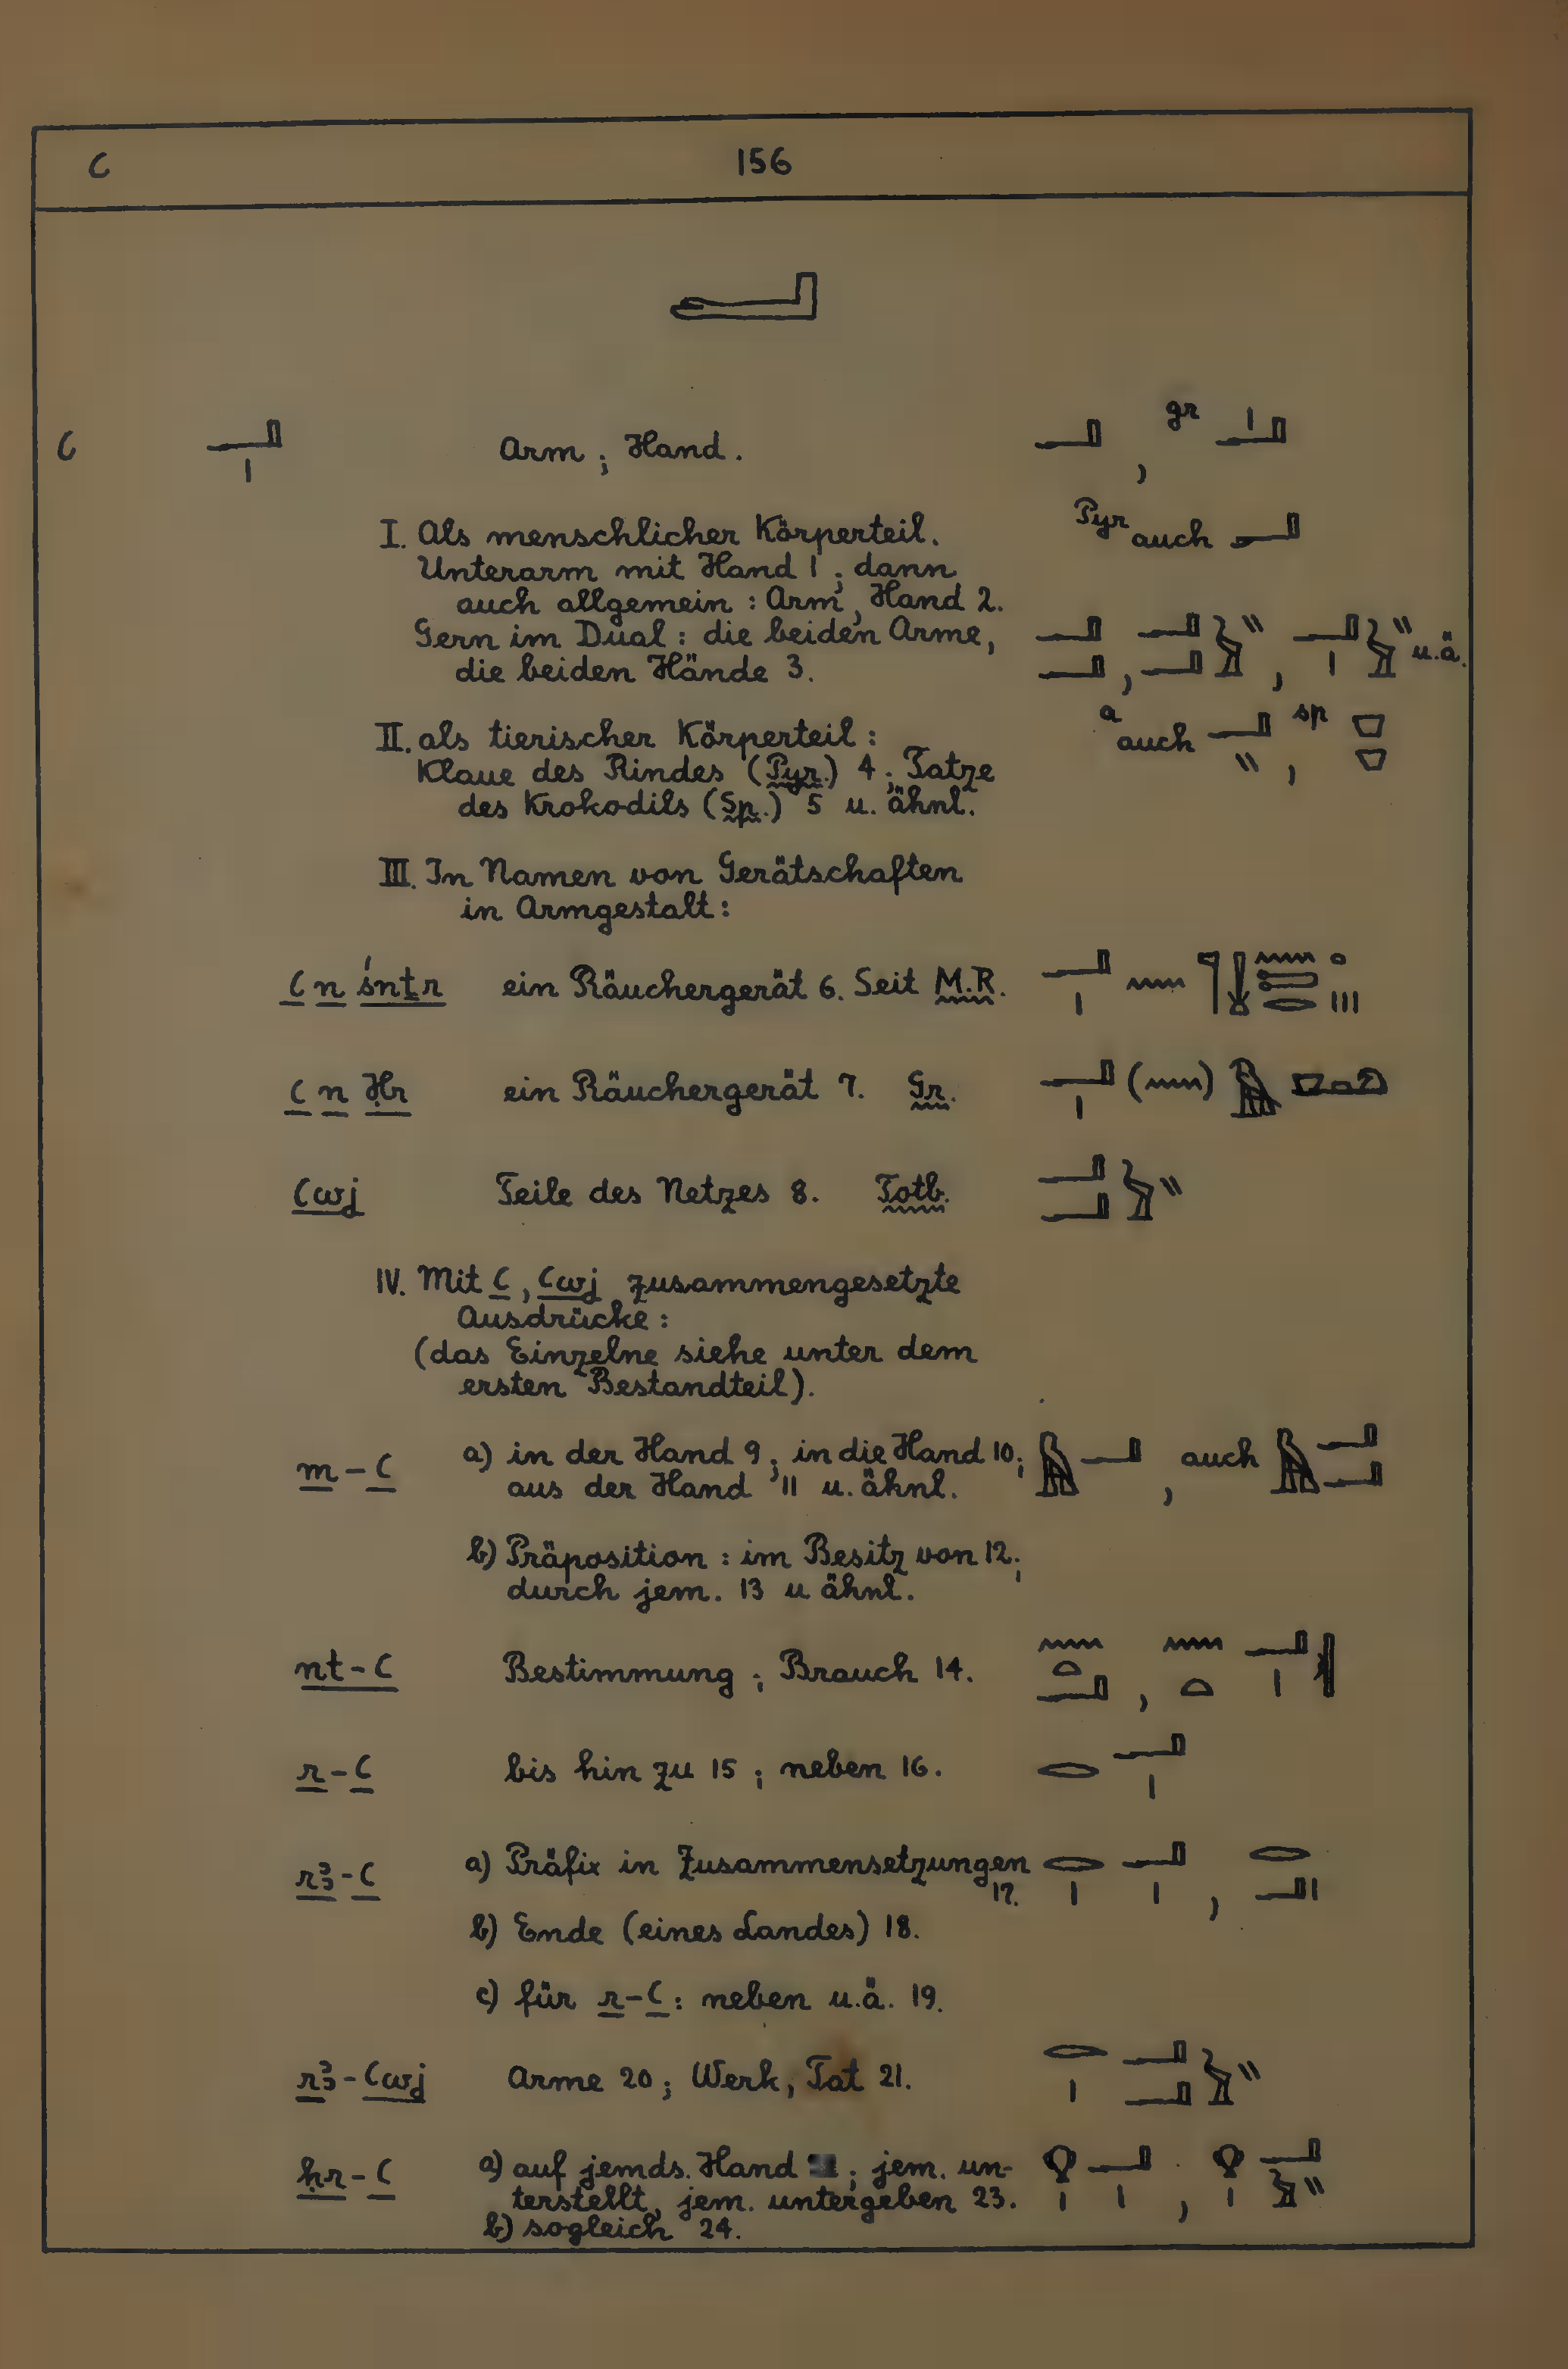 ꜥ 156
𓂝
ꜥ 𓂝𓏤 Arm; Hand. 𓂝, gr 𓏤𓂝
I. Als menschlicher Körperteil. Pyr auch 𓂝
Unterarm mit Hand 1; dann
auch allgemein: Arm, Hand 2.
Gern im Dual: die beiden Arme, u.ä.
die beiden Hände 3.
II. als tierischer Körperteil: a auch 𓂝 sp
Klaue des Rindes (Pyr.) 4; Tatze
des Krokodils (Sp.) 5 u. ähnl.
III. In Namen von Gerätschaften
in Armgestalt:
ꜥ n śnṯr ein Räuchergerät 6. Seit M.R. 𓂝𓏤𓈖𓊹
ꜥ n Ḥr ein Räuchergerät 7. Gr. 𓂝𓏤(𓈖)
ꜥwj Teile des Netzes 8. Totb. 𓂝𓂝
IV. Mit ꜥ, ꜥwj zusammengesetzte
Ausdrücke:
(das Einzelne siehe unter dem
ersten Bestandteil).
m-ꜥ a) in der Hand 9; in die Hand 10; 𓅓𓂝, auch 𓅓𓂝𓂝
aus der Hand 11 u. ähnl.
b) Präposition: im Besitz von 12;
durch jem. 13 u ähnl.
nt-ꜥ Bestimmung; Brauch 14. 𓈖𓏏𓂝, 𓈖𓏏𓂝𓏤𓏛
r-ꜥ bis hin zu 15; neben 16. 𓂋𓂝𓏤
rꜣ-ꜥ a) Präfix in Zusammensetzungen 𓂋𓏤𓂝𓏤, 𓂋𓂝𓏤
17.
b) Ende (eines Landes) 18.
c) für r-ꜥ: neben u.ä. 19.
rꜣ-ꜥwj Arme 20; Werk, Tat 21. 𓂋𓏤𓂝𓂝
ḥr-ꜥ a) auf jemds. Hand ; jem. un- 𓁷𓏤𓂝𓏤, 𓁷𓏤𓂝
terstellt, jem. untergeben 23.
b) sogleich 24.